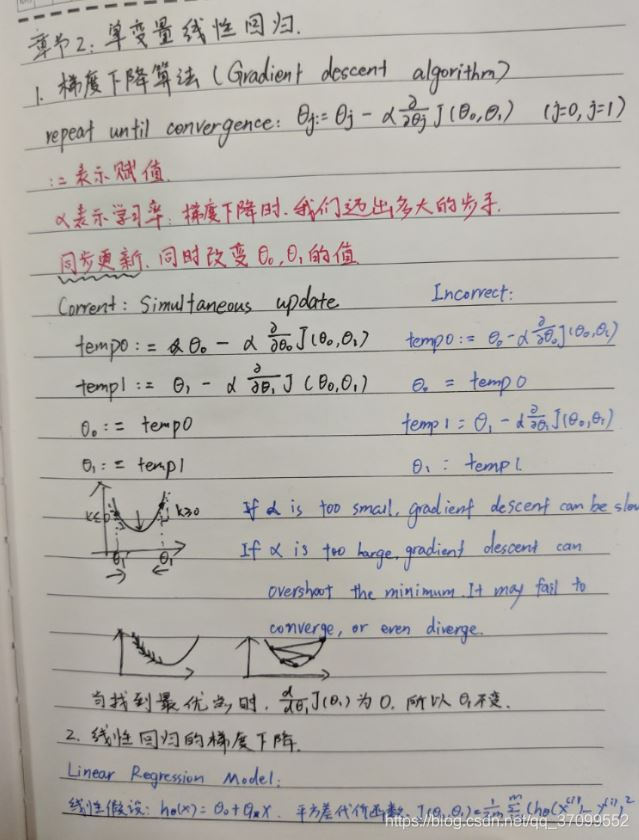 章节2：单变量线性回归.
1. 梯度下降算法 (Gradient descent algorithm)
repeat until convergence: θj:= θj - α ∂/∂θj J(θ₀,θ₁) (j=0, j=1)
:= 表示赋值.
α表示学习率: 梯度下降时.我们迈出多大的步子.
同步更新.同时改变θ₀,θ₁的值
Corrent: Simultaneous update
Incorrect:
temp0:= θ₀ - α ∂/∂θ₀ J(θ₀,θ₁)
temp0:= θ₀ - α ∂/∂θ₀ J(θ₀,θ₁)
temp1:= θ₁ - α ∂/∂θ₁ J (θ₀,θ₁)
θ₀ = temp0
θ₀:= temp0
temp1 = θ₁ - α ∂/∂θ₁ J(θ₀,θ₁)
θ₁:= temp1
θ₁ = temp1.
k≤0
k≥0
θ₁
θ₁
If α is too small, gradient descent can be slow
If α is too large, gradient descent can
overshoot the minimum. It may fail to
converge, or even diverge.
当找到最优点时, d/dθ₁ J(θ₁) 为0. 所以 θ₁不变.
2. 线性回归的梯度下降.
Linear Regression Model:
线性假设: hθ(x) = θ₀+θ₁x. 平方差代价函数 J(θ₀,θ₁)= 1/2m Σ (hθ(x⁽ⁱ⁾)- y⁽ⁱ⁾)²
https://blog.csdn.net/qq_37099552